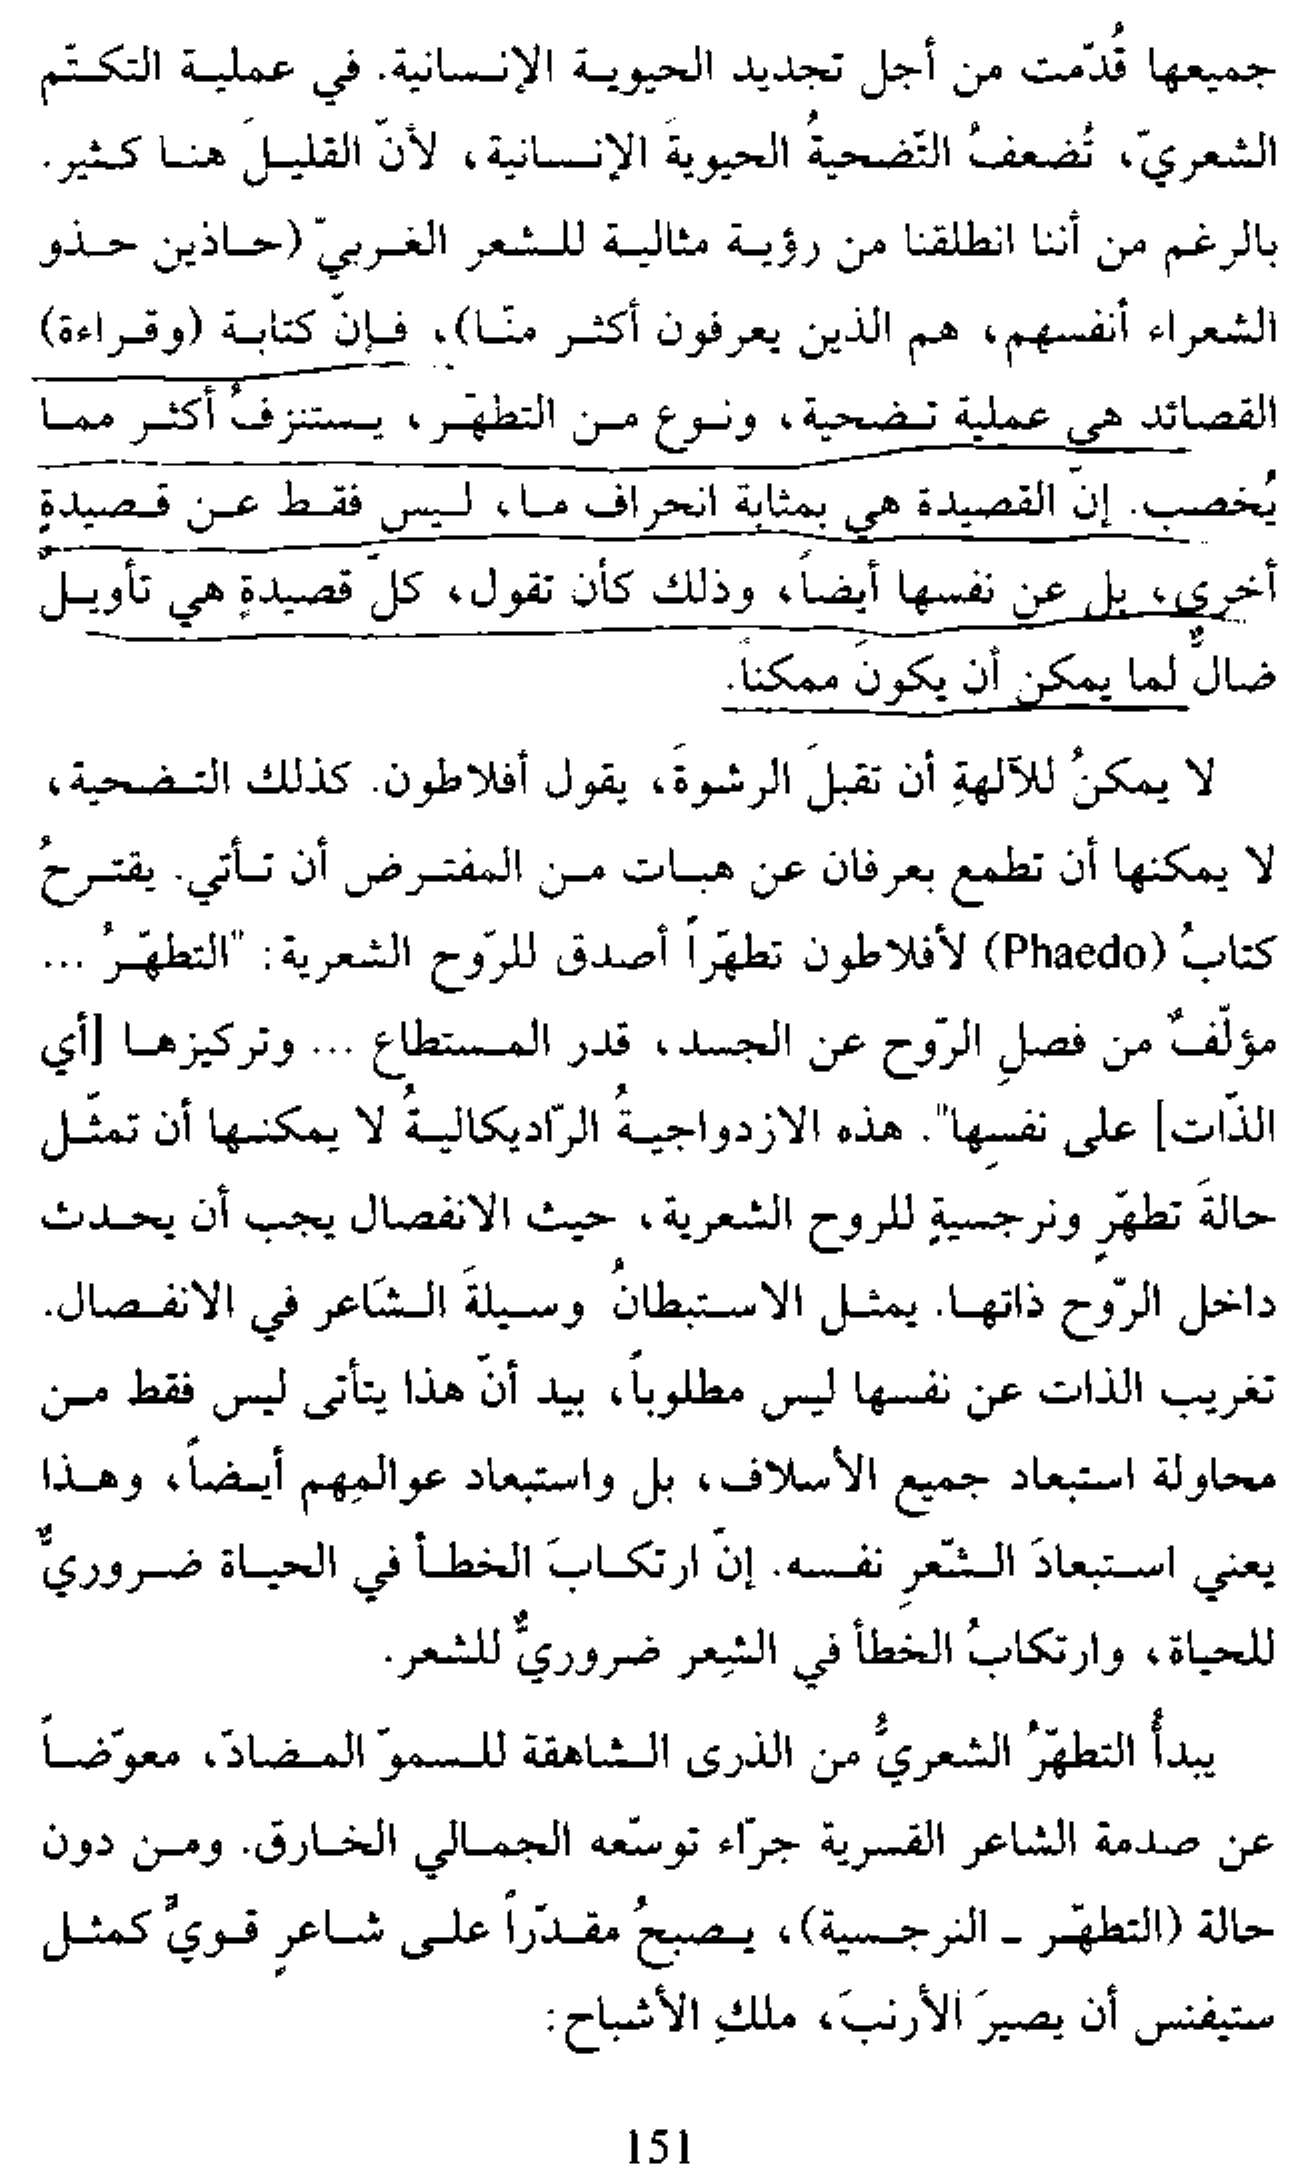 جميعها قُدّمت من أجل تجديد الحيوية الإنسانية. في عملية التكتّم
الشعريّ، تُضعفُ التّضحيةُ الحيويةَ الإنسانية، لأنّ القليلَ هنا كثير.
بالرغم من أننا انطلقنا من رؤية مثالية للشعر الغربيّ (حاذين حذو
الشعراء أنفسهم، هم الذين يعرفون أكثر منّا)، فإنّ كتابة (وقراءة)
القصائد هي عملية تضحية، ونوع من التطهّر، يستنزفُ أكثر مما
يُخصب. إنّ القصيدة هي بمثابة انحراف ما، ليس فقط عن قصيدةٍ
أخرى، بل عن نفسها أيضاً، وذلك كأن تقول، كلّ قصيدةٍ هي تأويلٌ
ضالٌّ لما يمكن أن يكونَ ممكناً.
لا يمكنُ للآلهةِ أن تقبلَ الرشوةَ، يقول أفلاطون. كذلك التضحية،
لا يمكنها أن تطمع بعرفان عن هبات من المفترض أن تأتي. يقترحُ
كتابُ (Phaedo) لأفلاطون تطهّراً أصدق للرّوح الشعرية: "التطهّرُ ...
مؤلّفٌ من فصلِ الرّوح عن الجسد، قدر المستطاع ... وتركيزها [أي
الذّات] على نفسِها". هذه الازدواجيةُ الرّاديكاليةُ لا يمكنها أن تمثّل
حالةَ تطهّرٍ ونرجسيةٍ للروح الشعرية، حيث الانفصال يجب أن يحدث
داخل الرّوح ذاتها. يمثل الاستبطانُ وسيلةَ الشّاعر في الانفصال.
تغريب الذات عن نفسها ليس مطلوباً، بيد أنّ هذا يتأتى ليس فقط من
محاولة استبعاد جميع الأسلاف، بل واستبعاد عوالمِهم أيضاً، وهذا
يعني استبعادَ الشّعرِ نفسه. إنّ ارتكابَ الخطأ في الحياة ضروريٌّ
للحياة، وارتكابُ الخطأ في الشِعر ضروريٌّ للشعر.
يبدأُ التطهّرُ الشعريُّ من الذرى الشاهقة للسموّ المضادّ، معوّضاً
عن صدمة الشاعر القسرية جرّاء توسّعه الجمالي الخارق. ومن دون
حالة (التطهّر ـ النرجسية)، يصبحُ مقدّراً على شاعرٍ قويٍّ كمثل
ستيفنس أن يصيرَ الأرنبَ، ملكِ الأشباح:
151